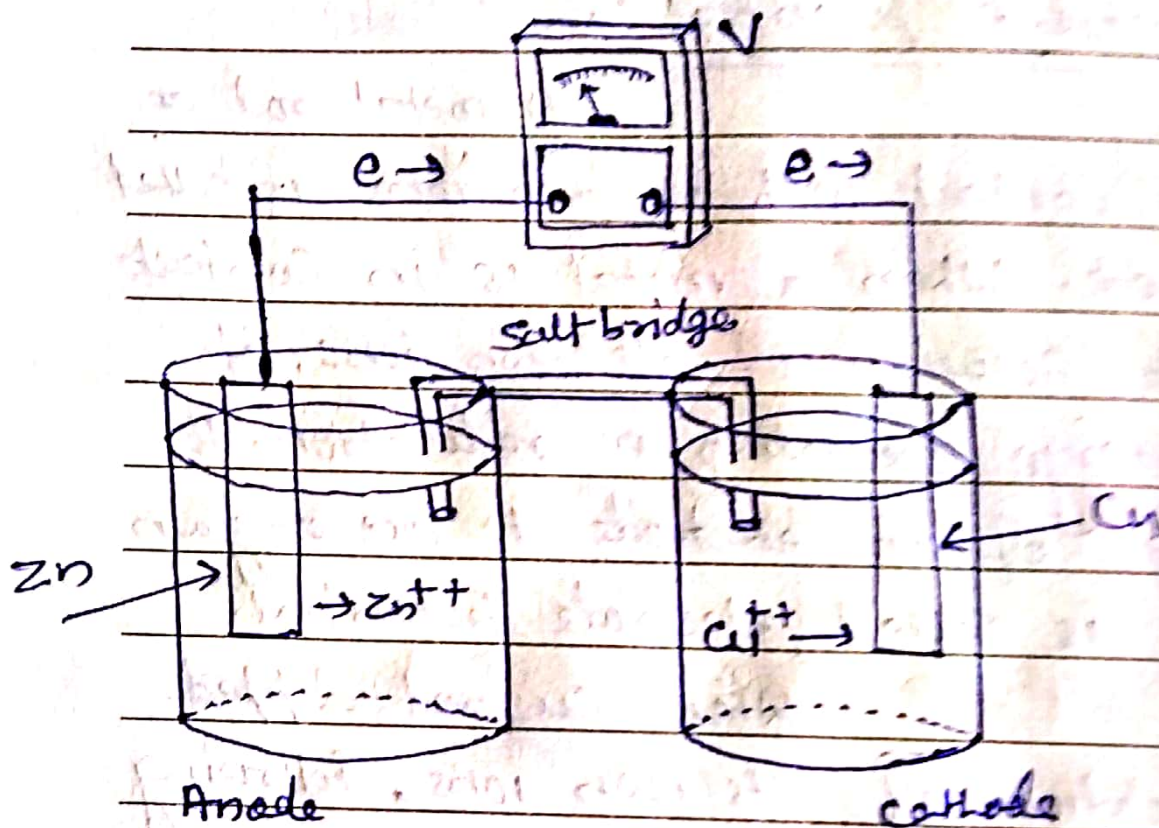 V
e → e →
Salt bridge
Zn → Zn⁺⁺
Cu⁺⁺ → Cu
Anode cathode